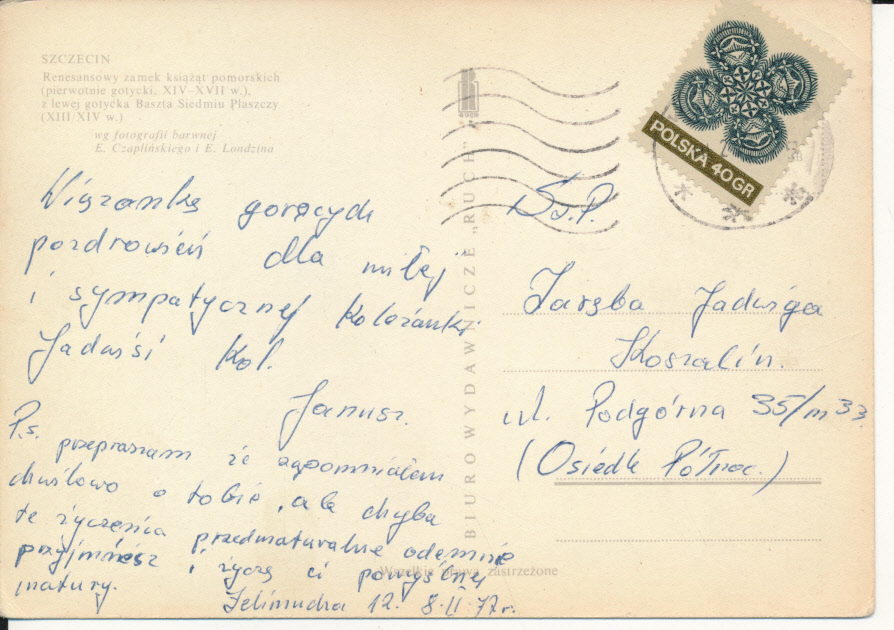 SZCZECIN
Renesansowy zamek książąt pomorskich
(pierwotnie gotycki, XIV–XVII w.),
z lewej gotycka Baszta Siedmiu Płaszczy
(XIII/XIV w.)
wg fotografii barwnej
E. Czaplińskiego i E. Londzina
Wiązankę gorących
pozdrowień dla miłej
i sympatycznej koleżanki
Jadwisi Kol.
Janusz.
P.s. przepraszam że zapomniałem
chwilowo o tobie, ale chyba
te życzenia przedmaturalne odemnie
przyjmiesz i życzę ci pomyślnej
matury.
12. 8.II.77r.
BIURO WYDAWNICZE „RUCH”
RUCH
POLSKA 40GR
Sz.P.
Zaręba Jadwiga
Koszalin.
ul. Podgórna 35/m 33
(Osiedle Północ.)
Wszelkie prawa zastrzeżone